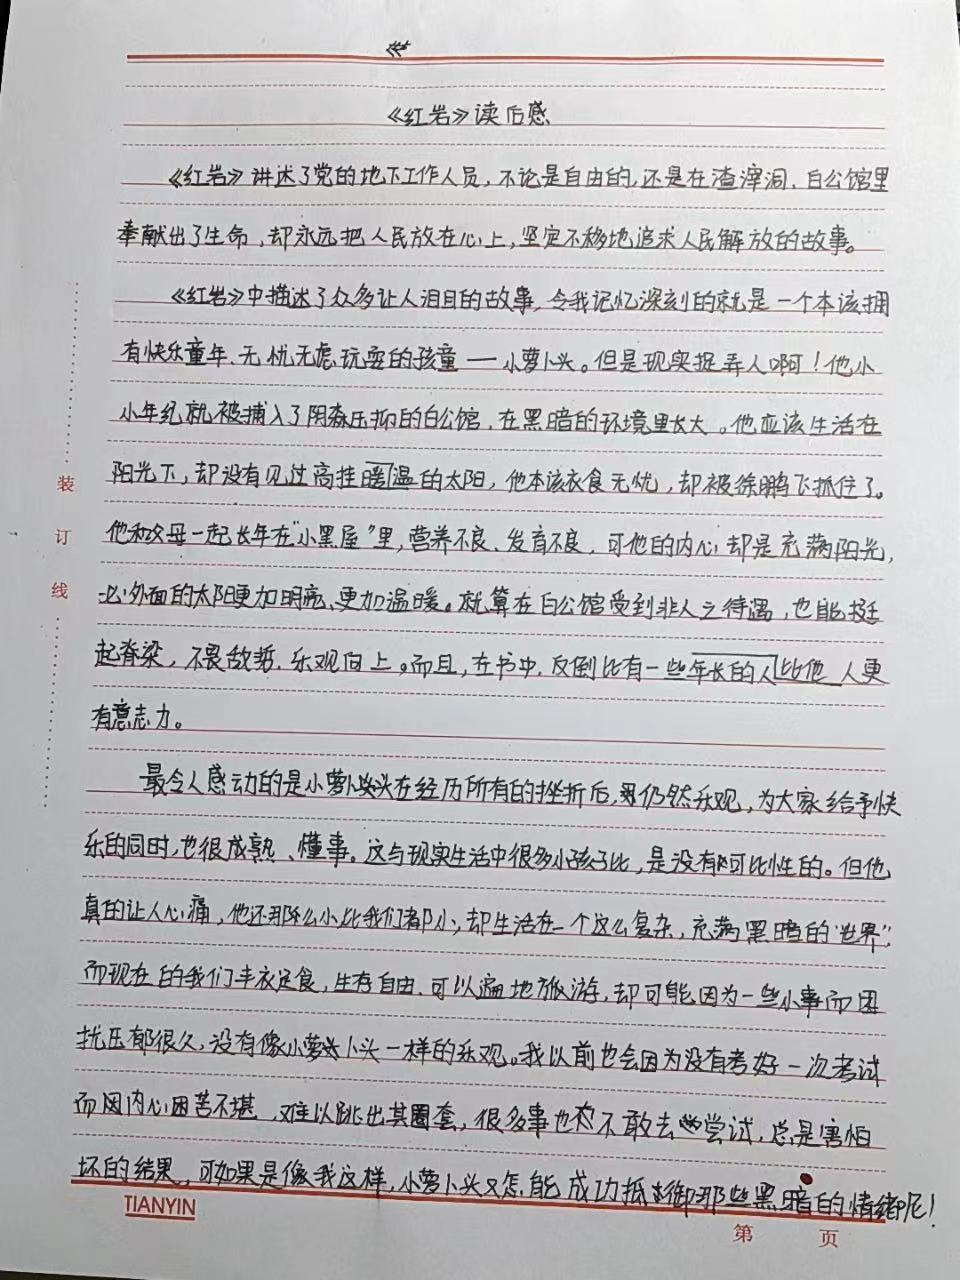 《红岩》读后感
《红岩》讲述了党的地下工作人员,不论是自由的,还是在渣滓洞、白公馆里
奉献出了生命,却永远把人民放在心上,坚定不移地追求人民解放的故事。
《红岩》中描述了众多让人泪目的故事,令我记忆深刻的就是一个本该拥
有快乐童年、无忧无虑玩耍的孩童——小萝卜头。但是现实捉弄人啊!他小
小年纪就被捕入了阴森压抑的白公馆,在黑暗的环境里长大。他应该生活在
阳光下,却没有见过高挂暖温的太阳,他本该衣食无忧,却被徐鹏飞抓住了。
他和父母一起长年在“小黑屋”里,营养不良、发育不良,可他的内心却是充满阳光,
比外面的太阳更加明亮、更加温暖。就算在白公馆受到非人之待遇,也能挺
起脊梁,不畏敌哲,乐观向上。而且,在书中,反倒比有一些年长的人比他人更
有意志力。
最令人感动的是小萝卜头在经历所有的挫折后,仍然乐观,为大家给予快
乐的同时,也很成熟、懂事。这与现实生活中很多小孩子比,是没有可比性的。但他
真的让人心痛,他还那么小比我们都小,却生活在一个这么复杂,充满黑暗的“世界”。
而现在的我们丰衣足食,生存自由,可以遍地旅游,却可能因为一些小事而困
扰压郁很久,没有像小萝卜头一样的乐观。我以前也会因为没有考好一次考试
而因内心困苦不堪,难以跳出其圈套,很多事也不敢去尝试,总是害怕
坏的结果,可如果是像我这样,小萝卜头又怎能成功抵御那些黑暗的情绪呢!
装
订
线
TIANYIN
第 页